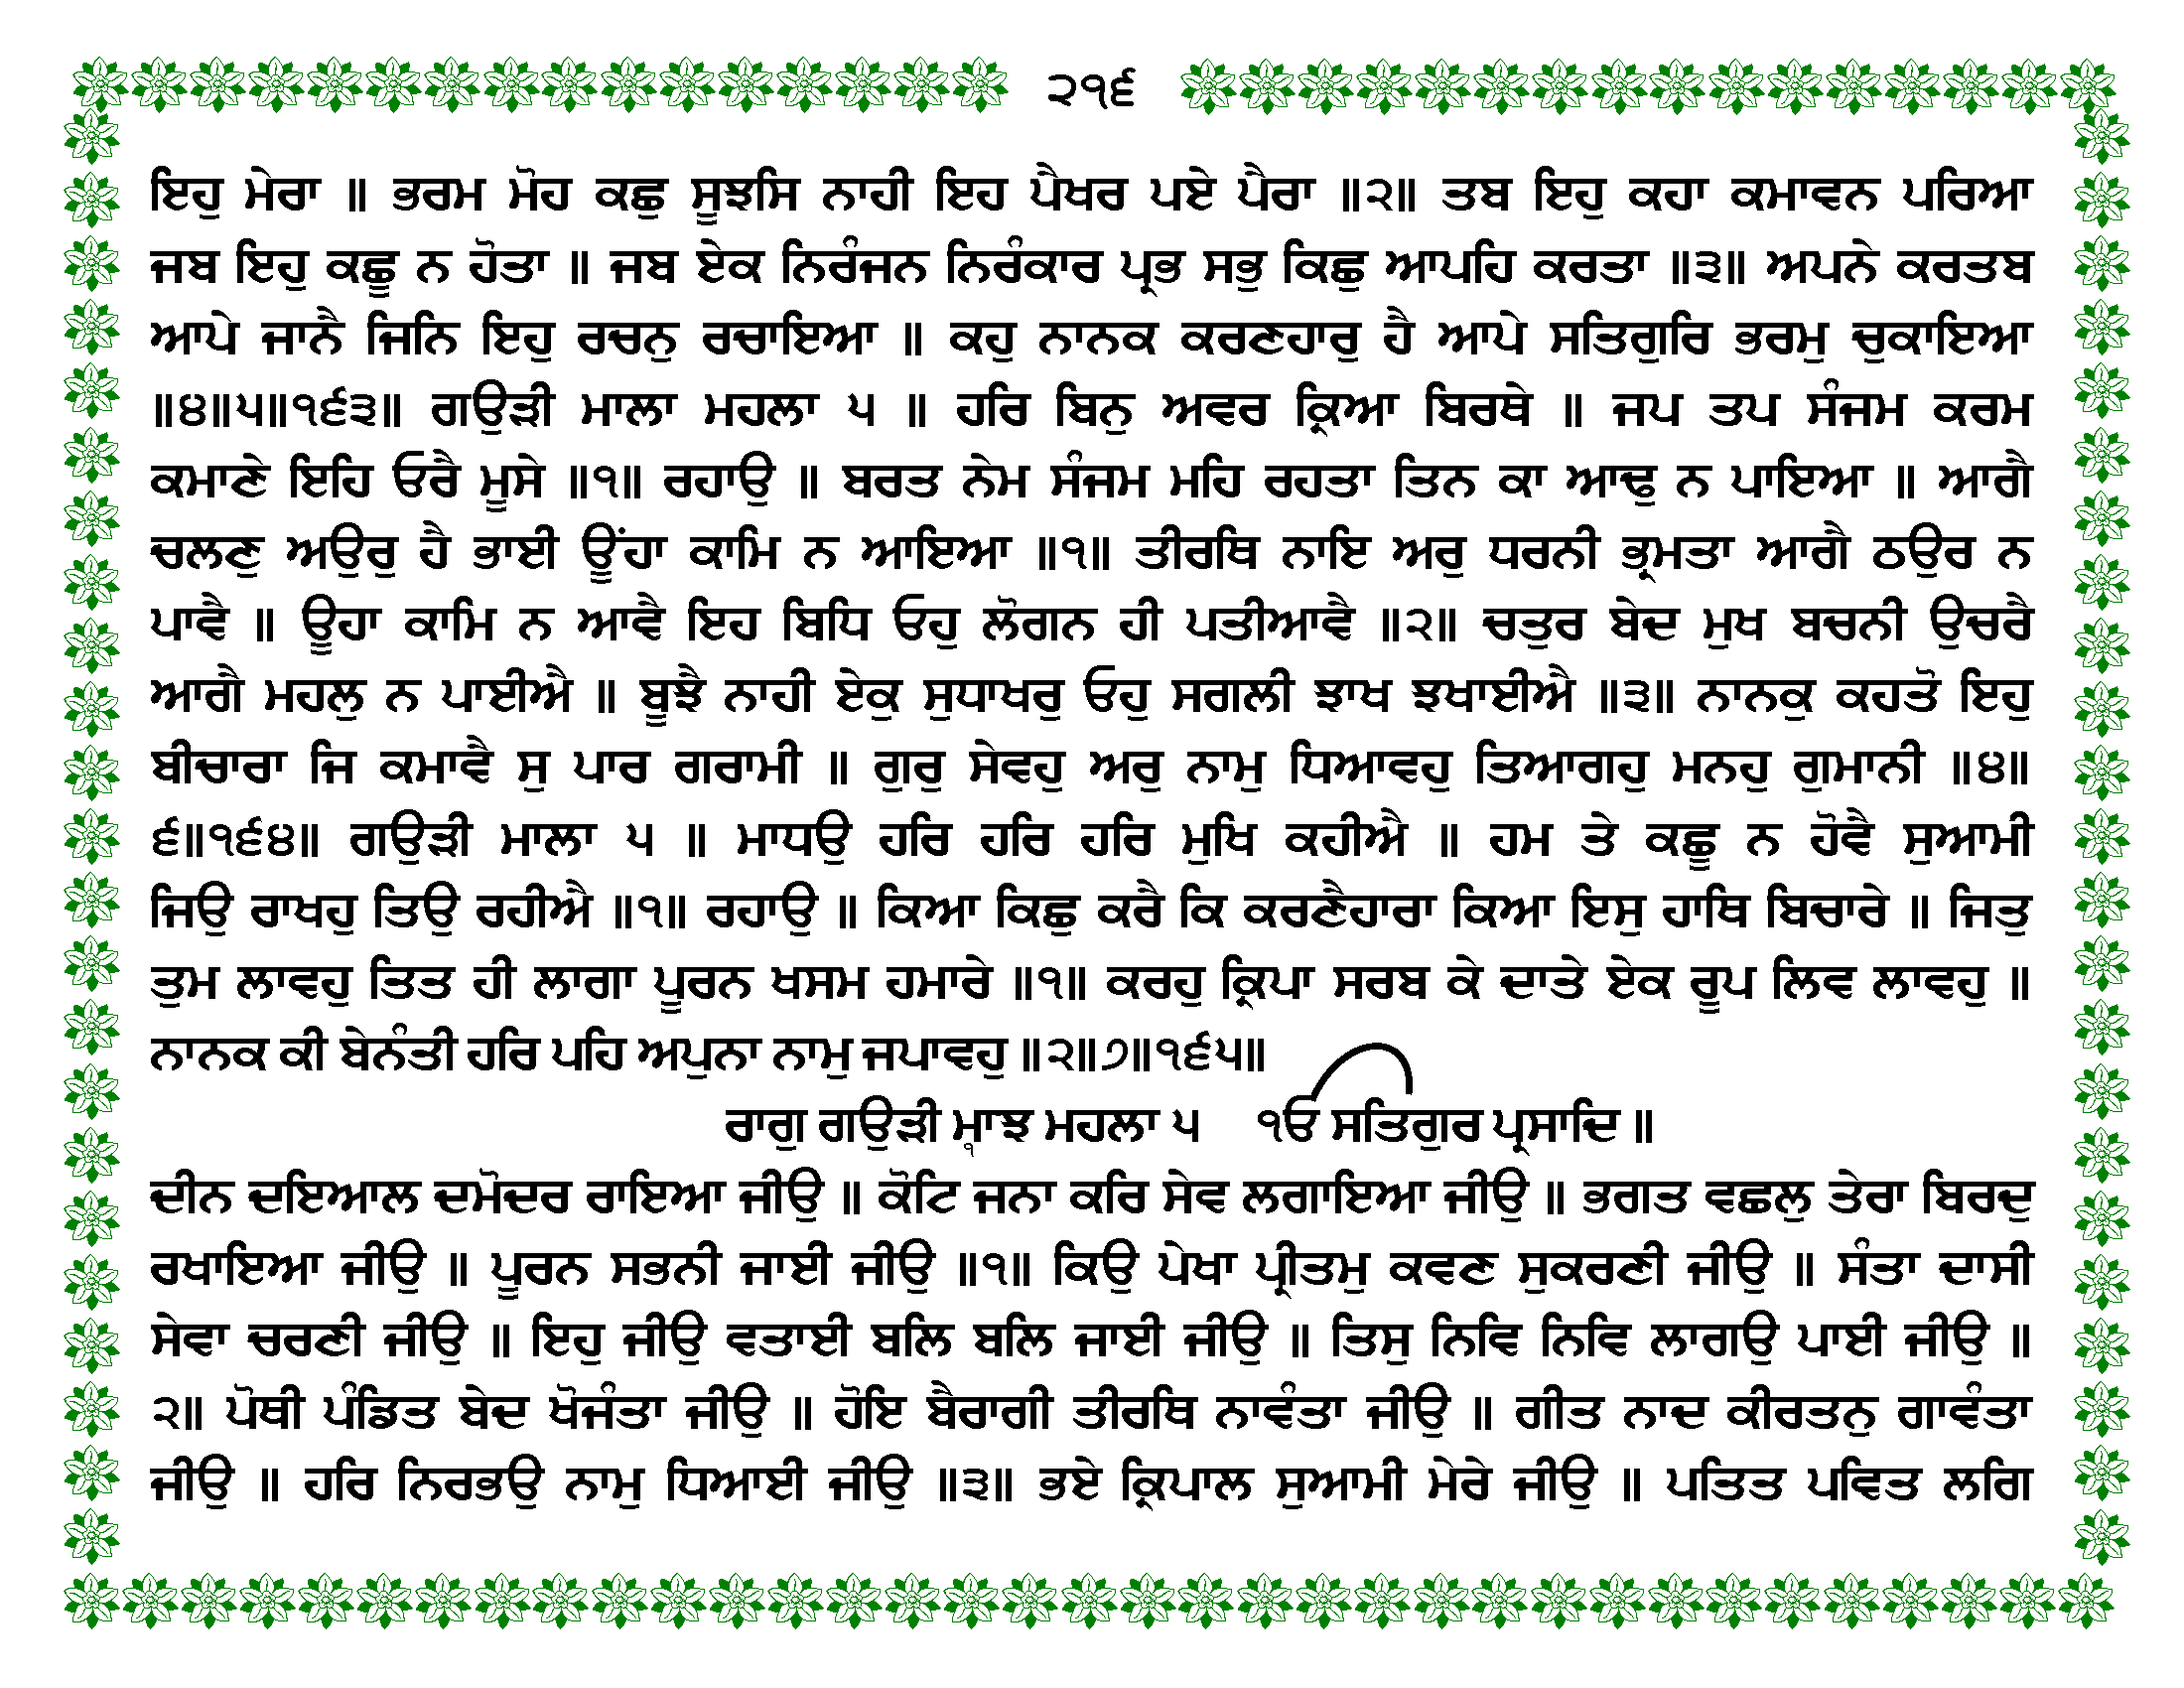 ੨੧੬
ਇਹੁ ਮੇਰਾ ॥ ਭਰਮ ਮੋਹ ਕਛੁ ਸੂਝਸਿ ਨਾਹੀ ਇਹ ਪੈਖਰ ਪਏ ਪੈਰਾ ॥੨॥ ਤਬ ਇਹੁ ਕਹਾ ਕਮਾਵਨ ਪਰਿਆ
ਜਬ ਇਹੁ ਕਛੂ ਨ ਹੋਤਾ ॥ ਜਬ ਏਕ ਨਿਰੰਜਨ ਨਿਰੰਕਾਰ ਪ੍ਰਭ ਸਭੁ ਕਿਛੁ ਆਪਹਿ ਕਰਤਾ ॥੩॥ ਅਪਨੇ ਕਰਤਬ
ਆਪੇ ਜਾਨੈ ਜਿਨਿ ਇਹੁ ਰਚਨੁ ਰਚਾਇਆ ॥ ਕਹੁ ਨਾਨਕ ਕਰਣਹਾਰੁ ਹੈ ਆਪੇ ਸਤਿਗੁਰਿ ਭਰਮੁ ਚੁਕਾਇਆ
॥੪॥੫॥੧੬੩॥ ਗਉੜੀ ਮਾਲਾ ਮਹਲਾ ੫ ॥ ਹਰਿ ਬਿਨੁ ਅਵਰ ਕ੍ਰਿਆ ਬਿਰਥੇ ॥ ਜਪ ਤਪ ਸੰਜਮ ਕਰਮ
ਕਮਾਣੇ ਇਹਿ ਓਰੈ ਮੂਸੇ ॥੧॥ ਰਹਾਉ ॥ ਬਰਤ ਨੇਮ ਸੰਜਮ ਮਹਿ ਰਹਤਾ ਤਿਨ ਕਾ ਆਢੁ ਨ ਪਾਇਆ ॥ ਆਗੈ
ਚਲਣੁ ਅਉਰੁ ਹੈ ਭਾਈ ਊਂਹਾ ਕਾਮਿ ਨ ਆਇਆ ॥੧॥ ਤੀਰਥਿ ਨਾਇ ਅਰੁ ਧਰਨੀ ਭ੍ਰਮਤਾ ਆਗੈ ਠਉਰ ਨ
ਪਾਵੈ ॥ ਊਹਾ ਕਾਮਿ ਨ ਆਵੈ ਇਹ ਬਿਧਿ ਓਹੁ ਲੋਗਨ ਹੀ ਪਤੀਆਵੈ ॥੨॥ ਚਤੁਰ ਬੇਦ ਮੁਖ ਬਚਨੀ ਉਚਰੈ
ਆਗੈ ਮਹਲੁ ਨ ਪਾਈਐ ॥ ਬੂਝੈ ਨਾਹੀ ਏਕੁ ਸੁਧਾਖਰੁ ਓਹੁ ਸਗਲੀ ਝਾਖ ਝਖਾਈਐ ॥੩॥ ਨਾਨਕੁ ਕਹਤੋ ਇਹੁ
ਬੀਚਾਰਾ ਜਿ ਕਮਾਵੈ ਸੁ ਪਾਰ ਗਰਾਮੀ ॥ ਗੁਰੁ ਸੇਵਹੁ ਅਰੁ ਨਾਮੁ ਧਿਆਵਹੁ ਤਿਆਗਹੁ ਮਨਹੁ ਗੁਮਾਨੀ ॥੪॥
੬॥੧੬੪॥ ਗਉੜੀ ਮਾਲਾ ੫ ॥ ਮਾਧਉ ਹਰਿ ਹਰਿ ਹਰਿ ਮੁਖਿ ਕਹੀਐ ॥ ਹਮ ਤੇ ਕਛੂ ਨ ਹੋਵੈ ਸੁਆਮੀ
ਜਿਉ ਰਾਖਹੁ ਤਿਉ ਰਹੀਐ ॥੧॥ ਰਹਾਉ ॥ ਕਿਆ ਕਿਛੁ ਕਰੈ ਕਿ ਕਰਣੈਹਾਰਾ ਕਿਆ ਇਸੁ ਹਾਥਿ ਬਿਚਾਰੇ ॥ ਜਿਤੁ
ਤੁਮ ਲਾਵਹੁ ਤਿਤ ਹੀ ਲਾਗਾ ਪੂਰਨ ਖਸਮ ਹਮਾਰੇ ॥੧॥ ਕਰਹੁ ਕ੍ਰਿਪਾ ਸਰਬ ਕੇ ਦਾਤੇ ਏਕ ਰੂਪ ਲਿਵ ਲਾਵਹੁ ॥
ਨਾਨਕ ਕੀ ਬੇਨੰਤੀ ਹਰਿ ਪਹਿ ਅਪੁਨਾ ਨਾਮੁ ਜਪਾਵਹੁ ॥੨॥੭॥੧੬੫॥
ਰਾਗੁ ਗਉੜੀ ਮਾਝ ਮਹਲਾ ੫ ੴ ਸਤਿਗੁਰ ਪ੍ਰਸਾਦਿ ॥
੧
ਦੀਨ ਦਇਆਲ ਦਮੋਦਰ ਰਾਇਆ ਜੀਉ ॥ ਕੋਟਿ ਜਨਾ ਕਰਿ ਸੇਵ ਲਗਾਇਆ ਜੀਉ ॥ ਭਗਤ ਵਛਲੁ ਤੇਰਾ ਬਿਰਦੁ
ਰਖਾਇਆ ਜੀਉ ॥ ਪੂਰਨ ਸਭਨੀ ਜਾਈ ਜੀਉ ॥੧॥ ਕਿਉ ਪੇਖਾ ਪ੍ਰੀਤਮੁ ਕਵਣ ਸੁਕਰਣੀ ਜੀਉ ॥ ਸੰਤਾ ਦਾਸੀ
ਸੇਵਾ ਚਰਣੀ ਜੀਉ ॥ ਇਹੁ ਜੀਉ ਵਤਾਈ ਬਲਿ ਬਲਿ ਜਾਈ ਜੀਉ ॥ ਤਿਸੁ ਨਿਵਿ ਨਿਵਿ ਲਾਗਉ ਪਾਈ ਜੀਉ ॥
੨॥ ਪੋਥੀ ਪੰਡਿਤ ਬੇਦ ਖੋਜੰਤਾ ਜੀਉ ॥ ਹੋਇ ਬੈਰਾਗੀ ਤੀਰਥਿ ਨਾਵੰਤਾ ਜੀਉ ॥ ਗੀਤ ਨਾਦ ਕੀਰਤਨੁ ਗਾਵੰਤਾ
ਜੀਉ ॥ ਹਰਿ ਨਿਰਭਉ ਨਾਮੁ ਧਿਆਈ ਜੀਉ ॥੩॥ ਭਏ ਕ੍ਰਿਪਾਲ ਸੁਆਮੀ ਮੇਰੇ ਜੀਉ ॥ ਪਤਿਤ ਪਵਿਤ ਲਗਿ